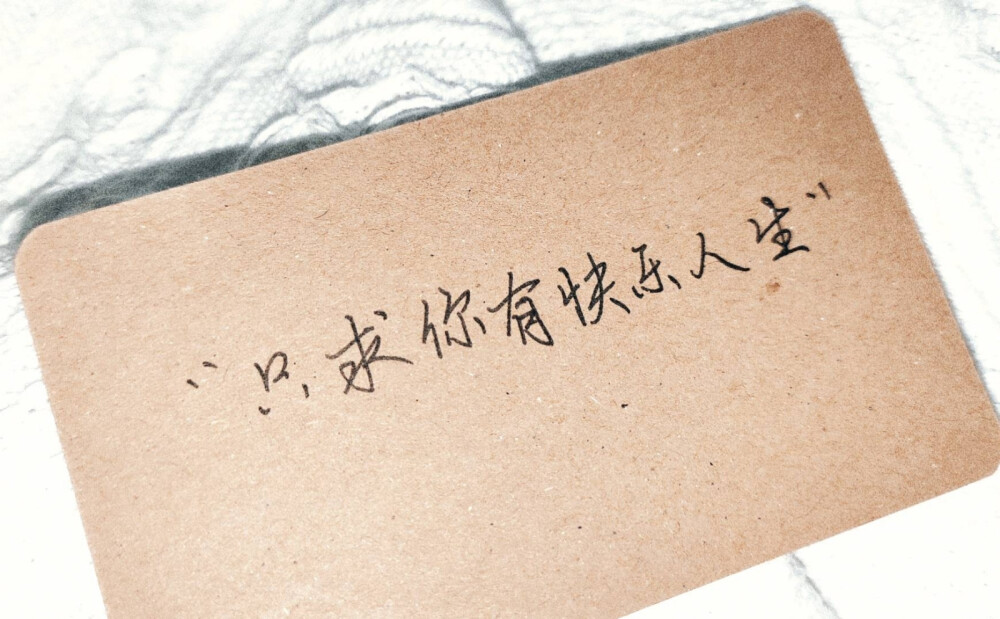 “只求你有快乐人生”